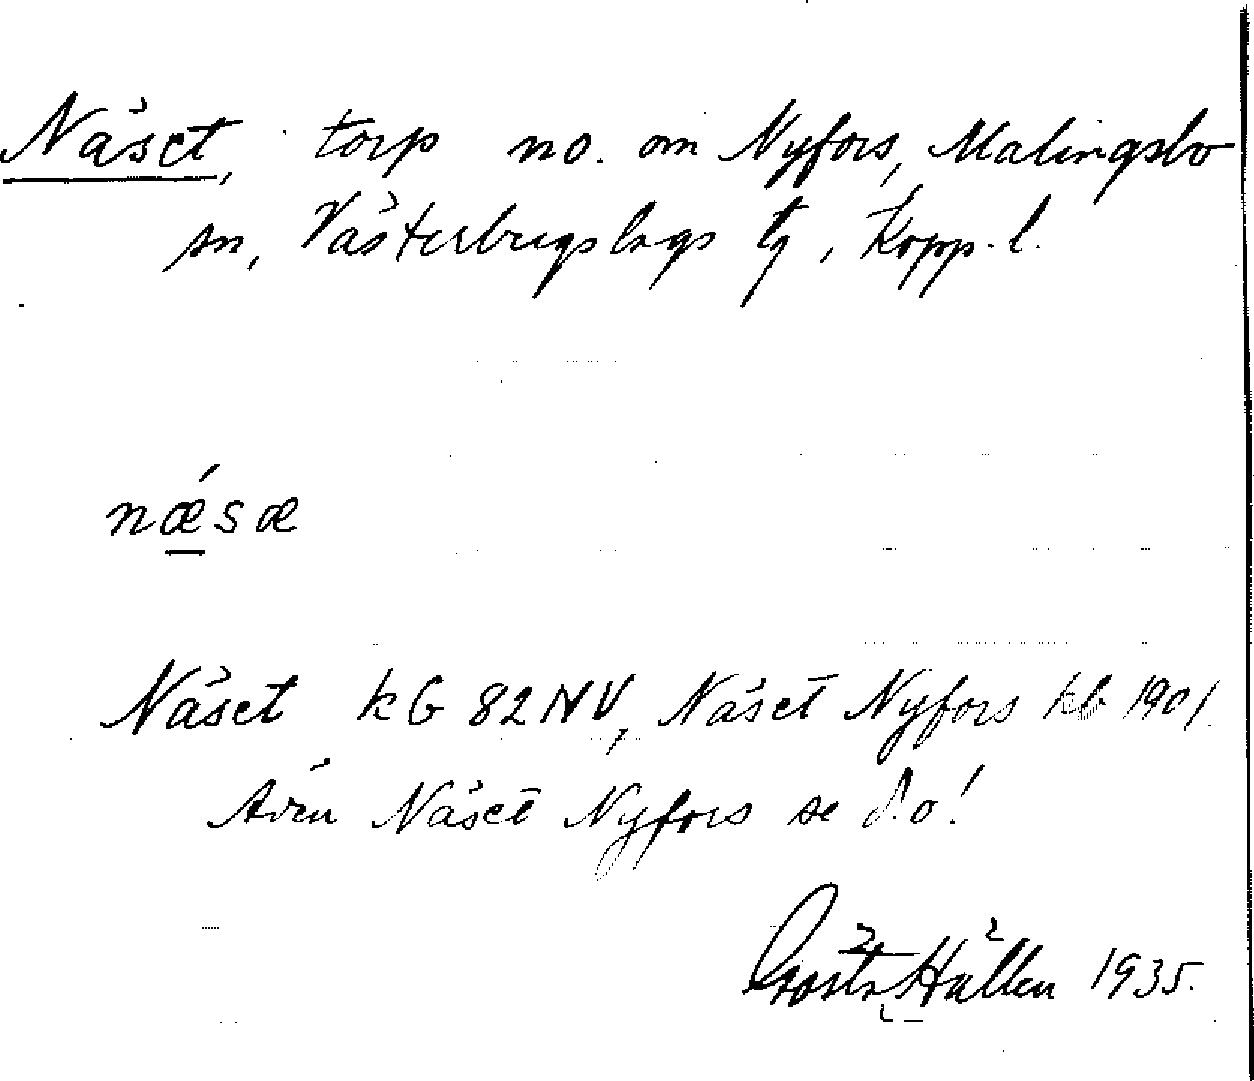 Näset, torp no. om Nyfors, Malingsbo
sn, Västerbergslags tg, Kopp. l.
nǽsæ
Näset kb 82 NV, Näset Nyfors kb 1901.
Även Näset Nyfors se d.o!
Gösta Hällen 1935.